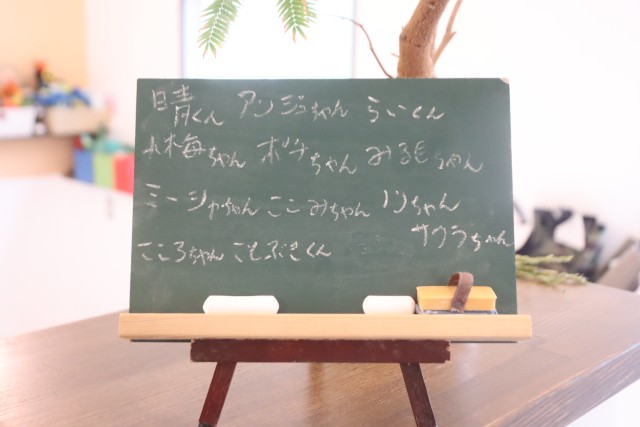 晴くん アンジュちゃん らいくん
小梅ちゃん ボヌちゃん みるもちゃん
ミーシャちゃん ここみちゃん リリちゃん
サクラちゃん
こころちゃん こてぷきくん